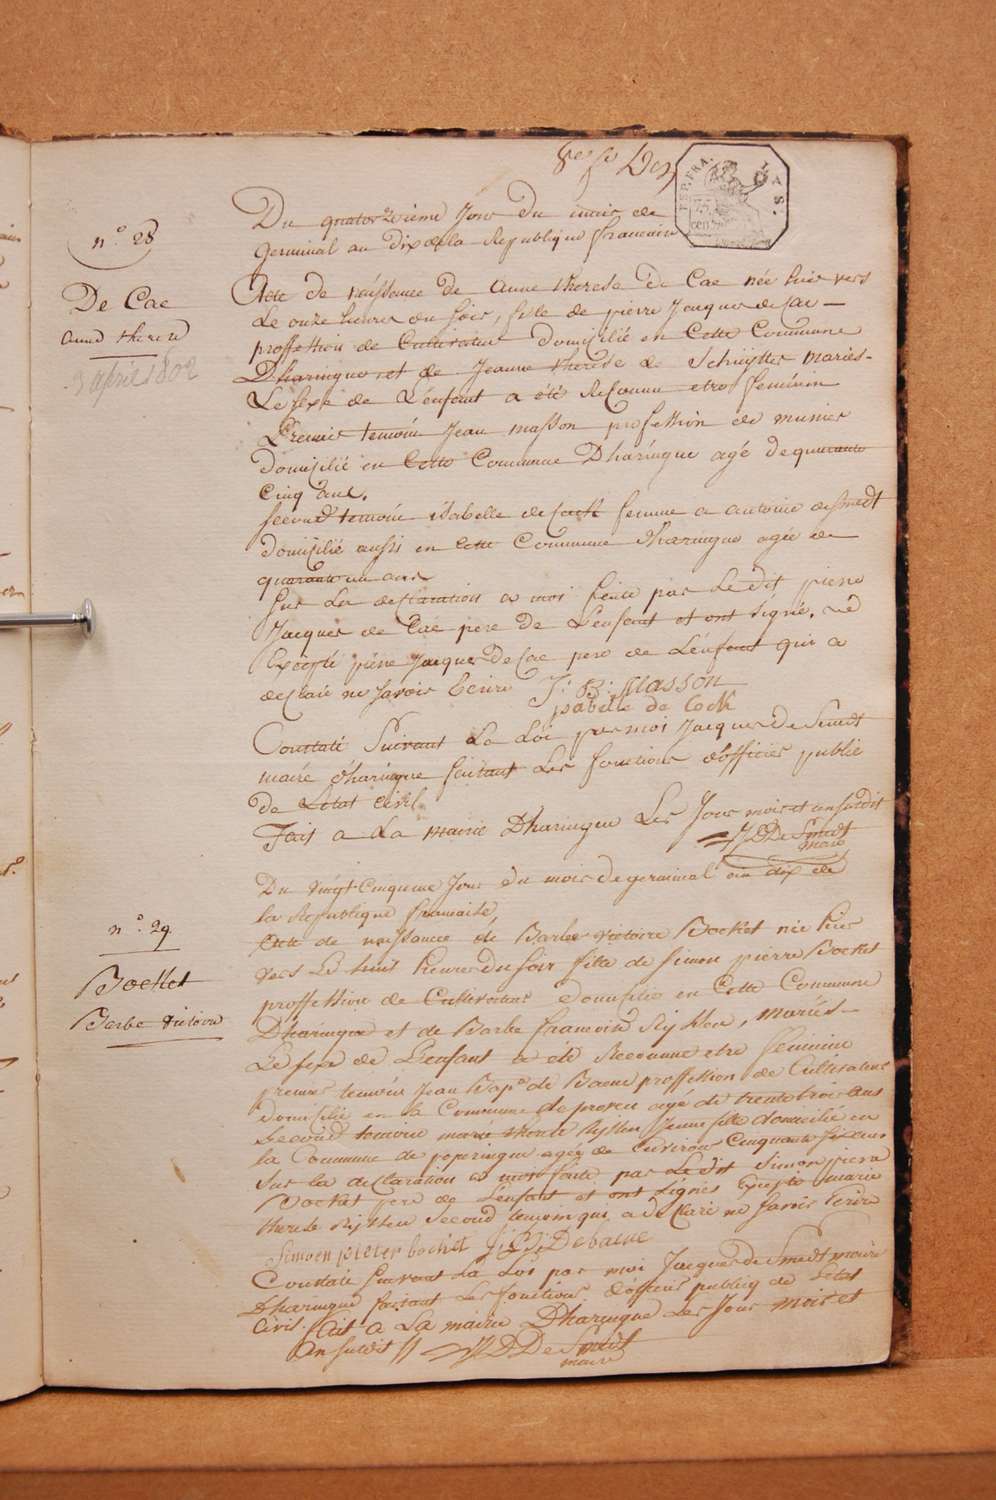 REP. FRA.
75
cen
n.° 28
De Cae
anne therese
3 april 1802
Du quatorzieme Jour du mois de
Germinal an Dix de la Republique francaise
Acte de naissance de Anne therese De Cae née hier vers
Le onze heures du soir, fille de pierre Jacques de Cae —
proffession de Cultivateur domisilié en Cette Commune
Dharingue et de Jeanne therese de Schuytter mariés-
Le sexe de L'enfant a été reConnu etre feminin
Premier temoin Jean masson profession de munier
domisilié en Cette Commune Dharingue agé de quarante
Cinq ans.
second temoin isabelle de Cock femme a antoine desmedt
domisilié aussi en Cette Commune dharingue agée de
quarante un ans
sur La declaration a moi faite par Le dit pierre
Jacques de Cae pere de L'enfant et ont signé.
Excepté piere Jacques De Cae pere de L'enfant qui a
declaré ne savoir Ecrire J: B: Masson
isabelle de Cock
Constaté Suivant La Loi par moi Jacques De Smedt
maire dharingue faisant Les fonctions d'officier public
de L'etat Civil
Fait a La mairie Dharingue Les Jour mois et an susdit
De Smedt
maire
n.° 29
Bocket
Barbe victoire
Du vingt Cinquieme Jour du mois de germinal an dix de
la Republique francaise,
Acte de naissance de Barbe victoire Bocket née hier
vers Le huit heures Du soir fille de simon pierre Bocket
proffession de Cultivateur domisilié en Cette Commune
Dharingue et de Barbe francoise Ryssen, mariés-
Le sexe de L'enfant a été Reconnu etre feminin
premier temoin Jean Bap.e de Baene proffession de Cultivateur
domisilié en la Commune de proven agé de trente trois ans
second temoin marie therese Ryssen Jeune fille domicilié en
la Commune de poperingue agée de Environ Cinquante six ans
sur la declaration a moi faite par Le dit Simon piere
Bocket pere de L'enfant et ont signés Excepté marie
therese Ryssen second temoin qui a declaré ne savoir Ecrire
Simoen pieter bocket J: B: De baene
Constaté suivant La Loi par moi Jacques de Smedt maire
Dharingue faisant Les fonctions d'officier publicq de L'etat
Civil. fait a La mairie Dharingue Les Jour mois et
an susdit
De Smedt
maire